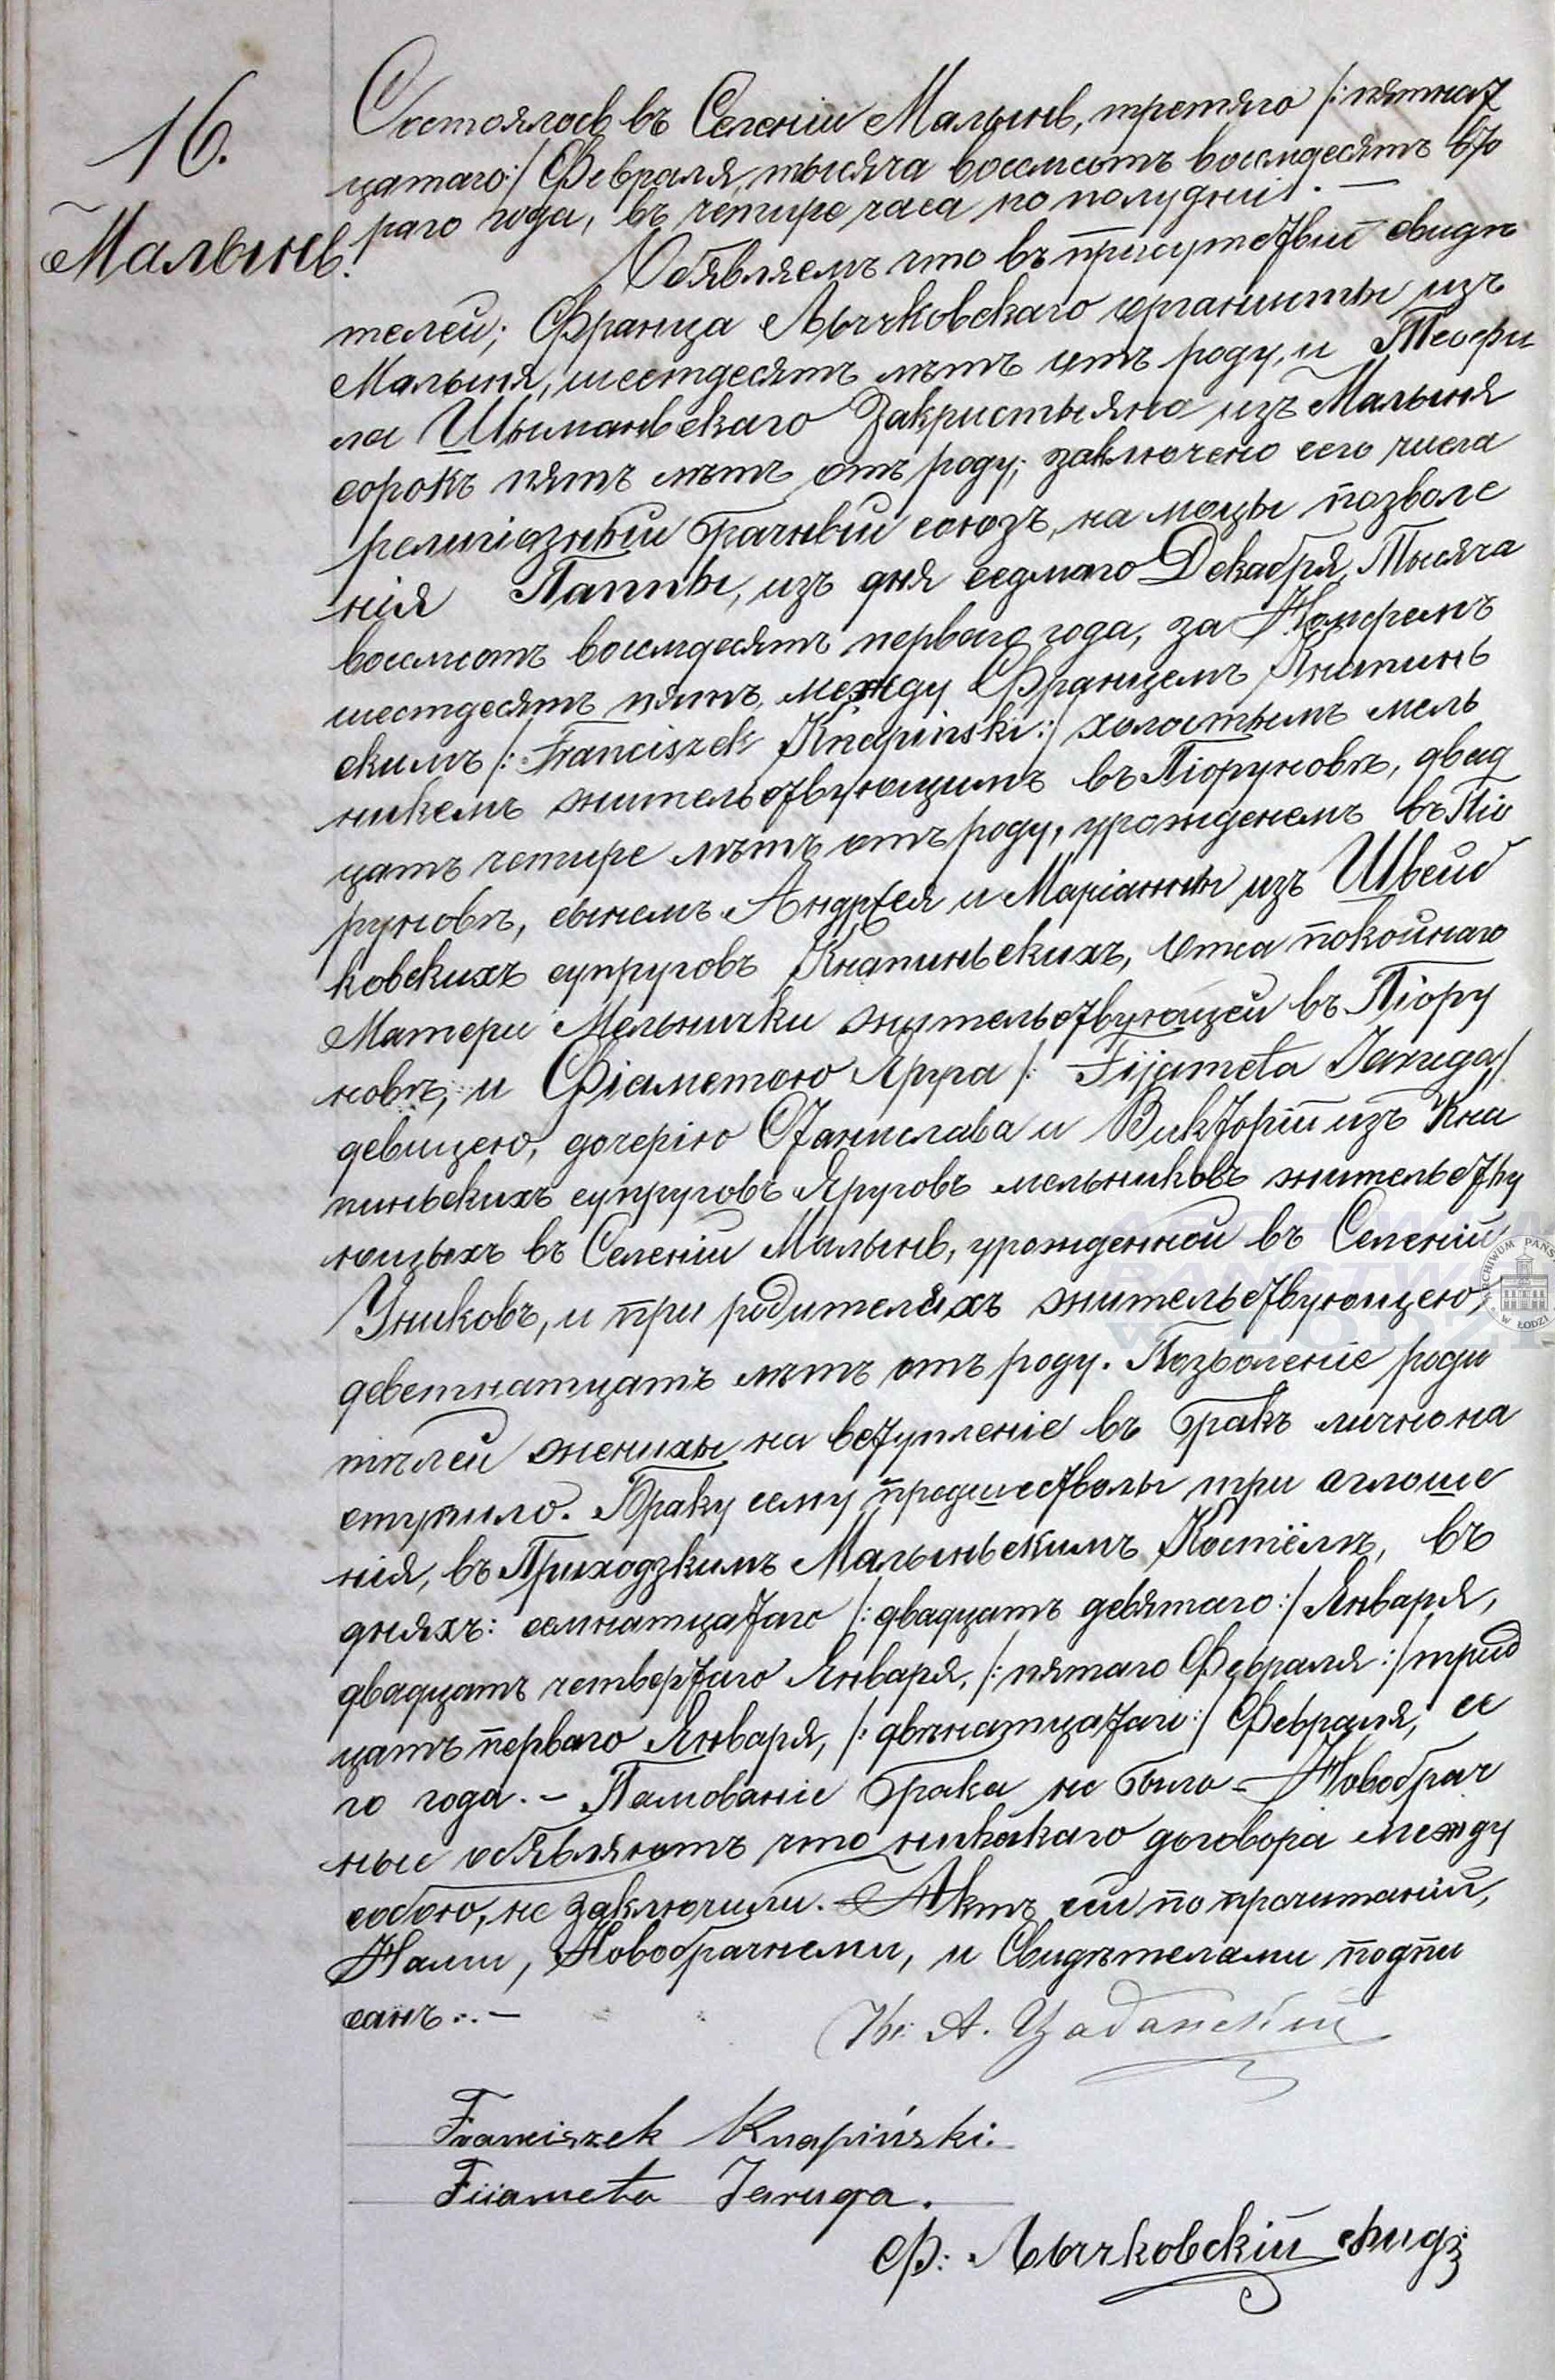 16.
Малынь.
Состоялось въ Селеніи Малынь, третяго /: пятнат
цатаго :/ Февраля, тысяча восемсотъ восемдесятъ вто
раго года, въ четире часа по полудни. —
Обявляемъ что въ присутствіи свидѣ
телей; Франца Лычковскаго органисты изъ
Малыня, шестдесятъ лѣтъ отъ роду, и Теофи
ла Шыманьскаго Закристыяна изъ Малыня
сорокъ пятъ лѣтъ отъ роду; заключено сего числа
религіозный брачный союзъ, на моцы позволе
нія Паппы, изъ дня седмаго Декабря, Тысяча
восемсотъ восемдесятъ перваго года, за Номеремъ
шестдесятъ пятъ, между Францемъ Кнапинь
скимъ /: Franciszek Knapinski :/ холостымъ мель
никемъ жительствующимъ въ Піоруновѣ, двад
цатъ четире лѣтъ отъ роду, урожденемъ въ Піо
руновѣ, сынемъ Андрея и Маріанны изъ Швейд
ковскихъ супруговъ Кнапиньскихъ, Отца покойнаго
Матери Мельнички жительствующей въ Піору
новѣ, и Фіаметою Яруга /: Fijameta Jaruga /
девицею, дочерію Станислава и Викторіи изъ Кна
пиньскихъ супруговъ Яруговъ мельниковъ жительству
ющыхъ въ Селеніи Малынь, урожденной въ Селеніи
Униковъ, и при родителяхъ жительствующею,
деветнатцатъ лѣтъ отъ роду. Позволеніе роди
тѣлей женихы на вступленіе въ бракъ лично на
ступило. Браку сему предшествовалы три оглоше
нія, въ Приходзкимъ Малыньскимъ Костёлѣ, въ
дняхъ: семнатцатаго /: двадцатъ девятаго :/ Января,
двадцатъ четвертаго Января, /: пятаго Февраля :/ трид
цатъ перваго Января, /: двѣнатцатаго :/ Февраля, се
го года. – Памованіе брака не было – Новобрач
ные обявляютъ что никакаго договора между
собою, не заключили. – Актъ сей по прочитаніи,
Нами, Новобрачнеми, и Свидѣтелами подпи
санъ. . –
Кс: А. Цабанскій
Franciszek Knapiński.
Fiiameta Jaruga.
Ф: Лычковскій свид:
ARCHIWUM
PAŃSTWOWE
W ŁODZI